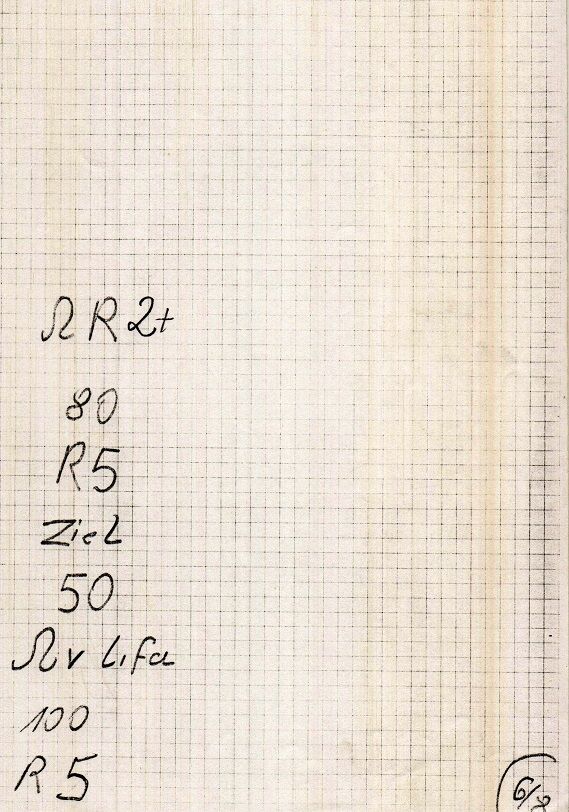 Ω R 2+
80
R 5
Ziel
50
Ω v Lifa
100
R 5
6/8